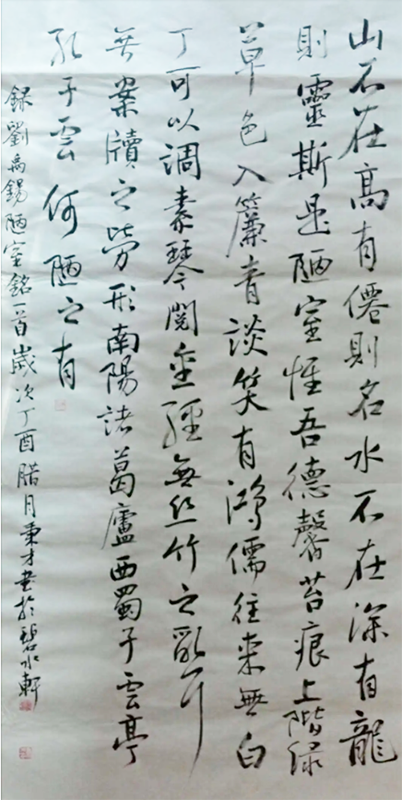 山不在高有僊則名水不在深有龍
則靈斯是陋室惟吾德馨苔痕上階緑
草色入簾青談笑有鴻儒往來無白
丁可以調素琴閲金經無丝竹之亂耳
無案牘之勞形南陽諸葛廬西蜀子雲亭
孔子云何陋之有
録劉禹錫陋室銘一首歲次丁酉腊月秉才书於碧水軒